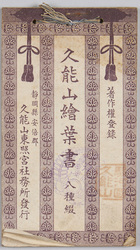 著作權登錄
久能山繪葉書
八種綴
靜岡縣安倍郡
久能山東照宮社務所發行